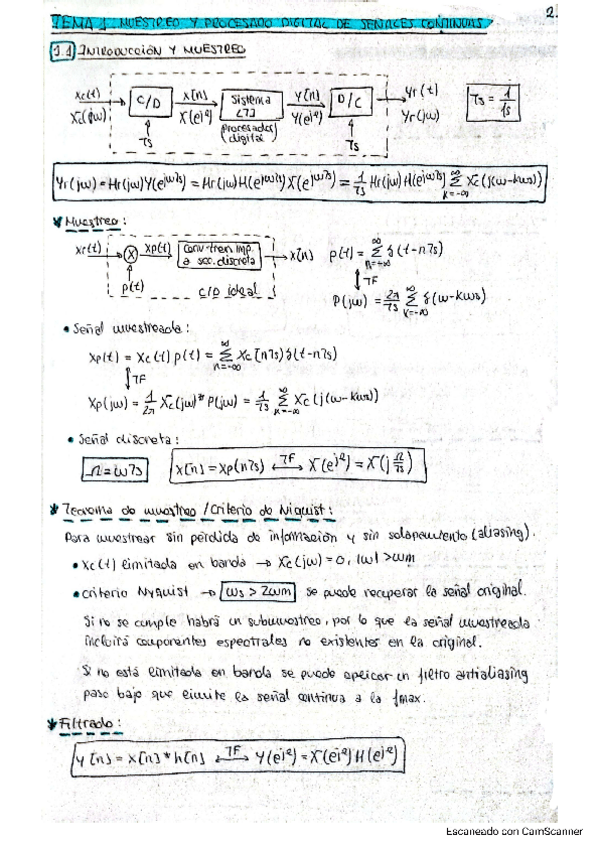 2.
TEMA 1: MUESTREO Y PROCESADO DIGITAL DE SEÑALES CONTINUAS
1.1 INTRODUCCIÓN Y MUESTREO
xc(t) C/D x[n] Sistema LTI y[n] D/C yr(t) Ts = 1/fs
Xc(jω) X(e^jΩ) (procesador digital) Y(e^jΩ) Yr(jω)
Ts Ts
Yr(jω) = Hr(jω)Y(e^jωTs) = Hr(jω)H(e^jωTs)X(e^jωTs) = 1/Ts Hr(jω)H(e^jωTs) ∑_{k=-∞}^{∞} Xc(j(ω-kωs))
Muestreo:
xc(t) x xp(t) Conv. tren imp. a sec. discreta x[n] p(t) = ∑_{n=-∞}^{∞} δ(t-nTs)
p(t) C/D ideal ↕TF
P(jω) = 2π/Ts ∑_{k=-∞}^{∞} δ(ω-kωs)
• Señal muestreada:
xp(t) = xc(t) p(t) = ∑_{n=-∞}^{∞} xc[nTs]δ(t-nTs)
↕TF
Xp(jω) = 1/2π Xc(jω)*P(jω) = 1/Ts ∑_{k=-∞}^{∞} Xc(j(ω-kωs))
• Señal discreta:
Ω=ωTs x[n] = xp(nTs) ⟷TF X(e^jΩ) = X(j Ω/Ts)
Teorema de muestreo / Criterio de Niquist:
Para muestrear sin pérdida de información y sin solapamiento (aliasing).
• xc(t) limitada en banda → Xc(jω) = 0, |ω| > ωm
• Criterio Nyquist → ωs > 2ωm se puede recuperar la señal original.
Si no se cumple habrá un submuestreo, por lo que la señal muestreada
incluirá componentes espectrales no existentes en la original.
Si no está limitada en banda se puede aplicar un filtro antialiasing
paso bajo que limite la señal continua a la fmax.
Filtrado:
y[n] = x[n] * h[n] ⟷TF Y(e^jΩ) = X(e^jΩ) H(e^jΩ)
Escaneado con CamScanner